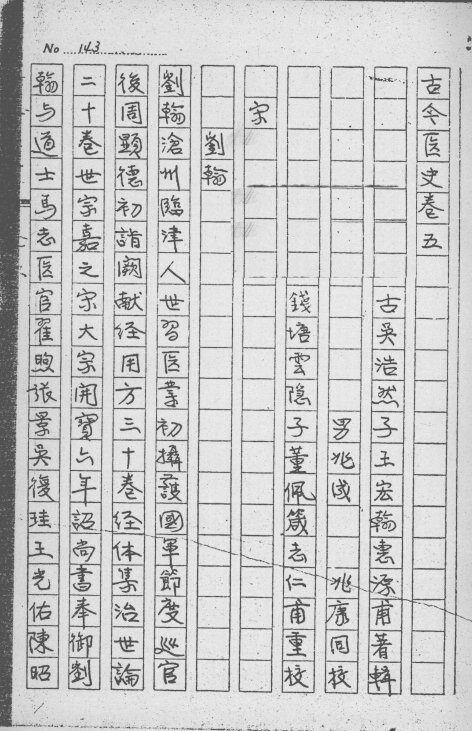 No 143
古今医史卷五
古吳浩然子王宏翰惠源甫著輯
男兆成 兆康同校
錢塘雲隐子董佩箴志仁甫重校
宋
劉翰
劉翰滄州臨津人世習医業初攝護國軍節度巡官
後周顕德初詣闕献経用方三十卷経体集治世論
二十卷世宗嘉之宋大宗開寶六年詔尚書奉御劉
翰与道士馬志医官翟煦張景吳復珪王光佑陳昭